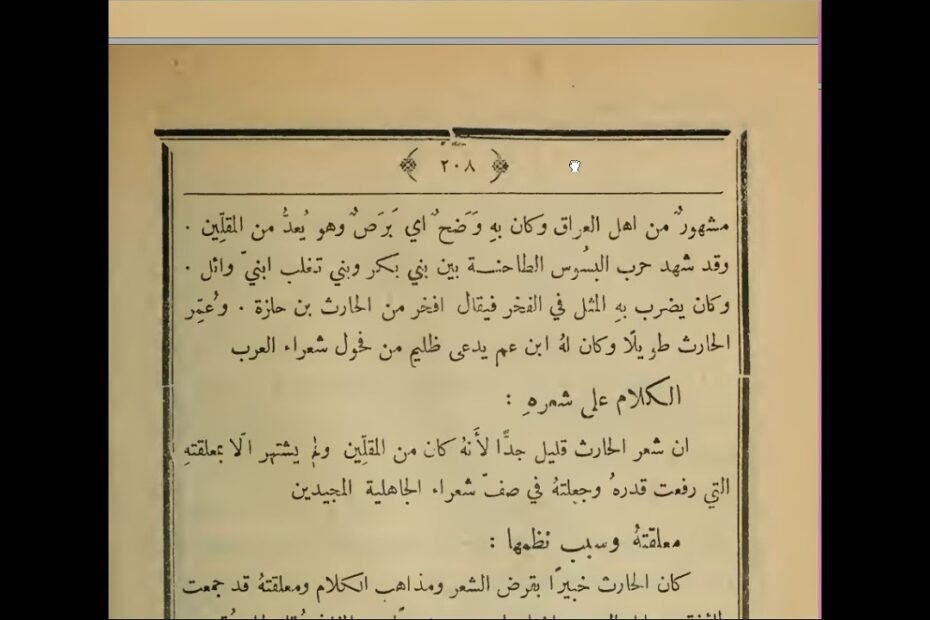 ٢٠٨
مشهورٌ من اهل العراق وكان بهِ وَضَحٌ اي بَرَصٌ وهو يُعدُّ من المقلِّين .
وقد شهد حرب البسُوس الطاحنـة بين بني بكر وبني تغلب ابنيّ وائل .
وكان يضرب بهِ المثل في الفخر فيقال افخر من الحارث بن حلزة . وعُمِّر
الحارث طويلًا وكان لهُ ابن عم يدعى ظليم من فحول شعراء العرب
الكلام على شعرهِ :
ان شعر الحارث قليل جدًّا لأَنهُ كان من المقلِّين ولم يشتهر الَّا بمعلقتهِ
التي رفعت قدرهُ وجعلتهُ في صفّ شعراء الجاهلية المجيدين
معلقتهُ وسبب نظمها :
كان الحارث خبيرًا بقرض الشعر ومذاهب الكلام ومعلقتهُ قد جمعت